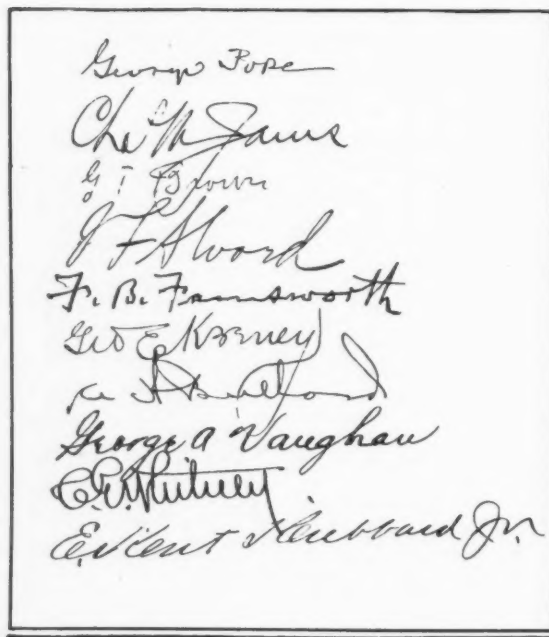 George Pope
Chs M Jarvis
G T Brown
J F Alvord
F. B. Farnsworth
Geo E Keeney
George A Vaughan
C. E. Whitney
E. Kent Hubbard Jr.